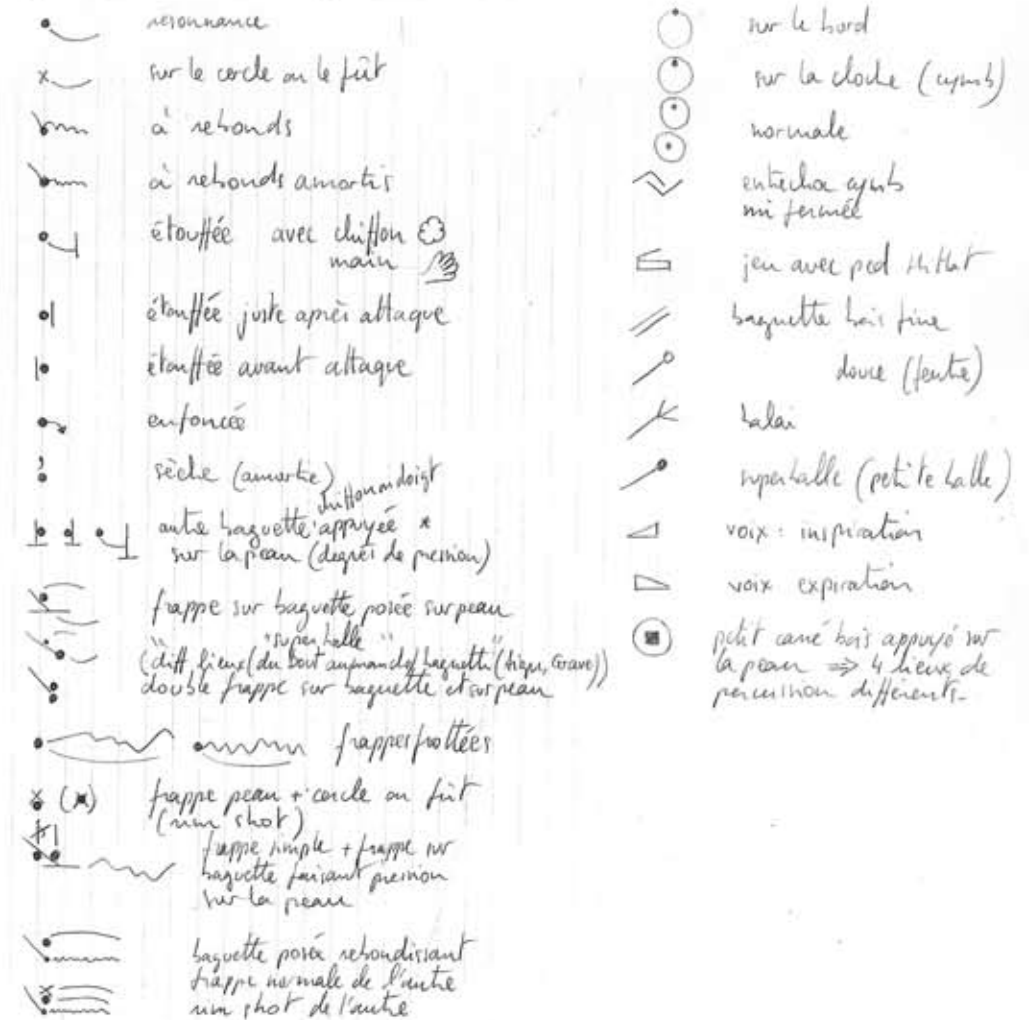 resonnance
sur le cercle ou le fût
à rebonds
à rebonds amortis
étouffée avec chiffon
main
étouffée juste après attaque
étouffée avant attaque
enfoncée
sèche (amortie)
chiffon ou doigt
autre baguette appuyée *
sur la peau (degrés de pression)
frappe sur baguette posée sur peau
"superballe"
(diff. lieux (du bout au manche) baguette (aigu, Grave))
double frappe sur baguette et sur peau
frappes frottées
frappe peau + cercle ou fût
(rim shot)
frappe simple + frappe sur
baguette faisant pression
sur la peau
baguette posée rebondissant
frappe normale de l'autre
rim shot de l'autre
sur le bord
sur la cloche (cymb)
normale
entrechoc cymb
mi fermée
jeu avec pied HiHat
baguette bois fine
douce (feutre)
balai
superballe (petite balle)
voix : inspiration
voix expiration
petit carré bois appuyé sur
la peau ⇒ 4 lieux de
percussion différents.